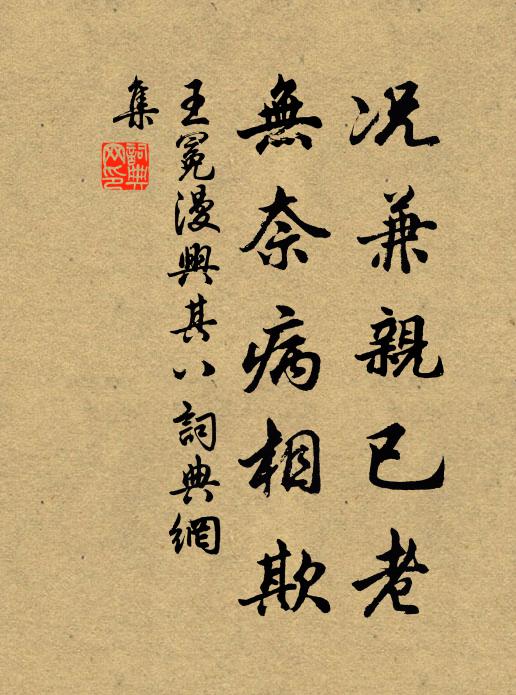 况兼親已老
無奈病相欺
王冕漫興其八詞典網
集
詞典
网印